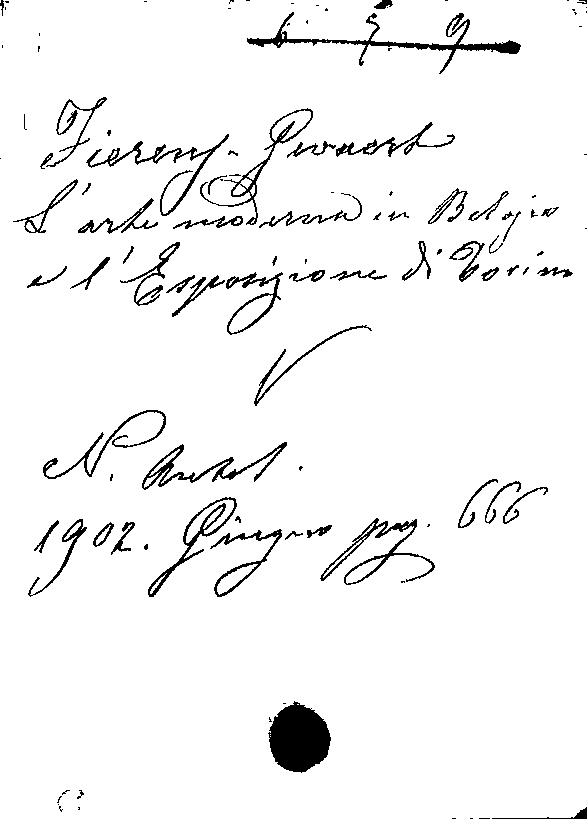 6 5 9
Fierens-Gevaert
L'arte moderna in Belgio
e l'Esposizione di Torino
V
N. Antol.
1902. Giugno pag. 666